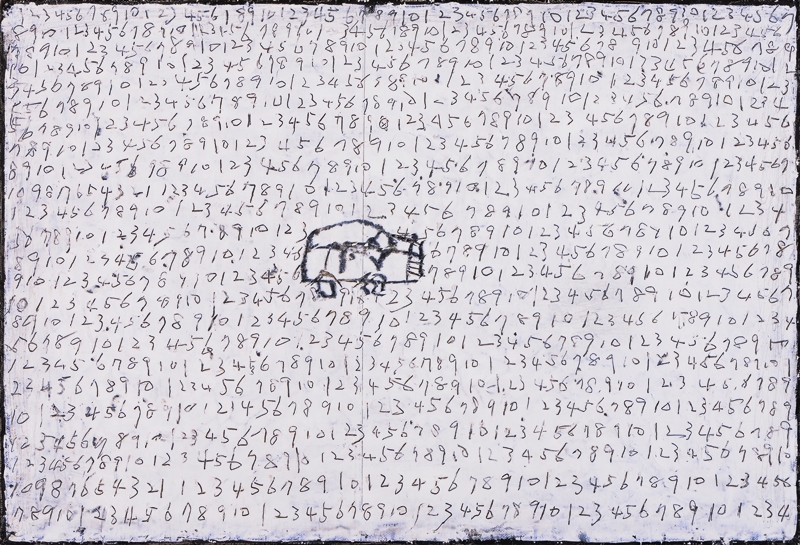 12345678910 12345678910 12345 678910 12345678910 12345678910 1234567
8910 12345678910 12345678910 1 345678910 12345678910 12345678910 123456
78910 12345678910 12345 678910 12345678910 12345678 910 12345678
10 12345678910 12345678910 12345678910 12345678910 12345678910 1
345678910 12345678910 123456 8910 123 45678910 12345678910 123
5678910 12345678910 12345678910 12345678910 12345678910 1234
678910 12345678910 12345678910 12345678910 12345678910 123456
78910 12345678910 123 456 78910 12345678910 12345678910 12345678
8910 12345678910 12345678910 12345678910 12345678910 1234567
10987654321 12345678910 12345678910 12345678910 12345678910
12345678910 12345678910 123456 78910 12345678910 1234
78910 12345678910 12345678910 12345678910 1234567
8910 12345678910 678910 12345678910 12345678
910 12345678910 123456 78910 12345678910 12345678910
10 12345678910 1234567 2345678910 12345678910 12345678
8910 12345678910 12345678910 12345678910 12345678910 1234
5678910 12345678910 12345678910 12345678910 12345678910
12345678910 12345678910 12345678910 12345678910 12345678910
2345678910 12345678910 12345678910 12345678910 123 45678910
10 12345678910 12345678910 12345678910 12345678910 12345678
12345678910 12345678910 12345678910 12345678910 123456789
12345678910 12345678910 12345678910 12345678910 12345678910
10987654321 12345678910 12345678910 12345678910 12345678910 123456
78910 12345678910 12345678910 12345678910 12345678910 1234